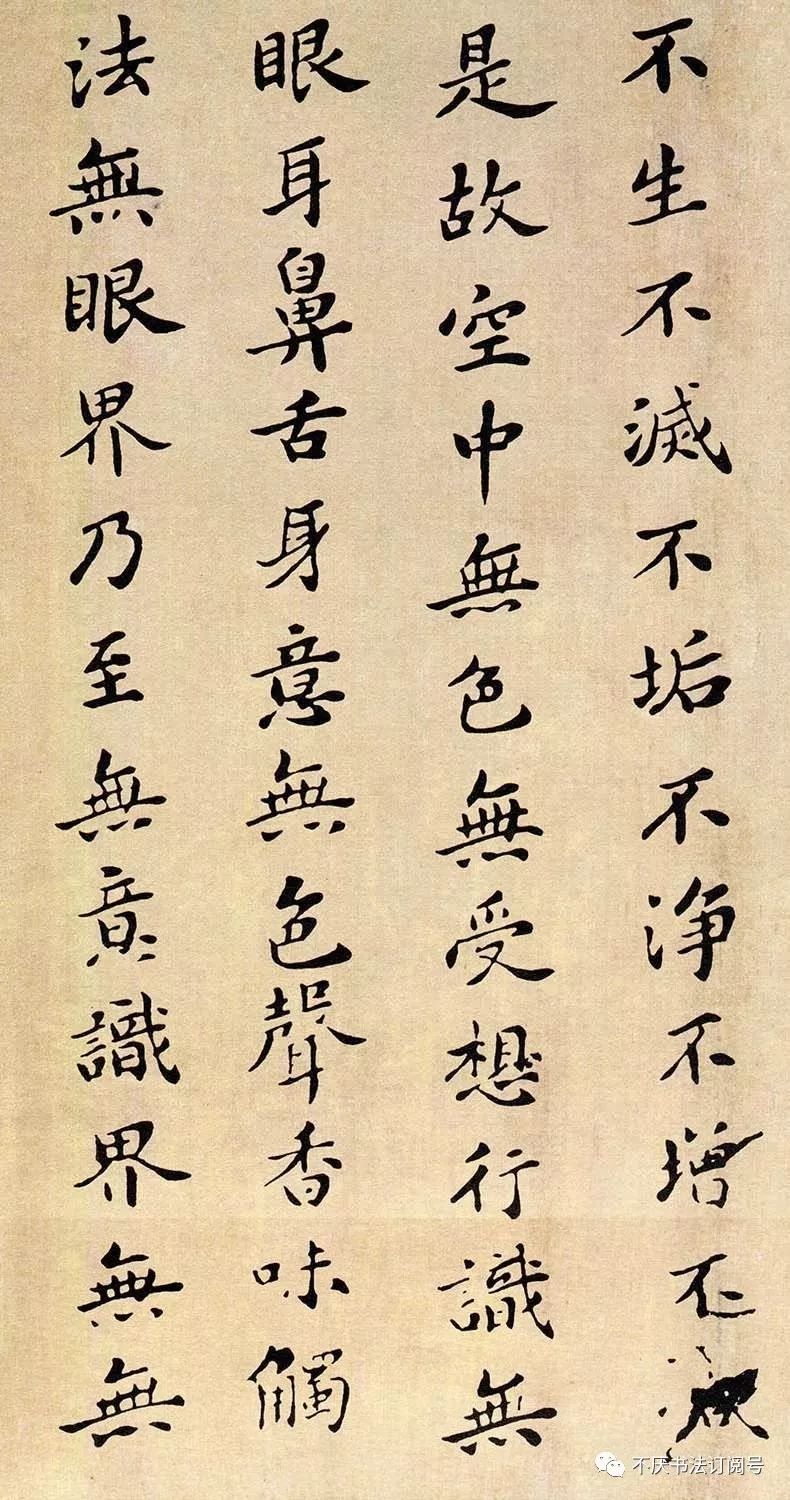 不生不滅不垢不淨不增不減
是故空中無色無受想行識無
眼耳鼻舌身意無色聲香味觸
法無眼界乃至無意識界無無
不厌书法订阅号